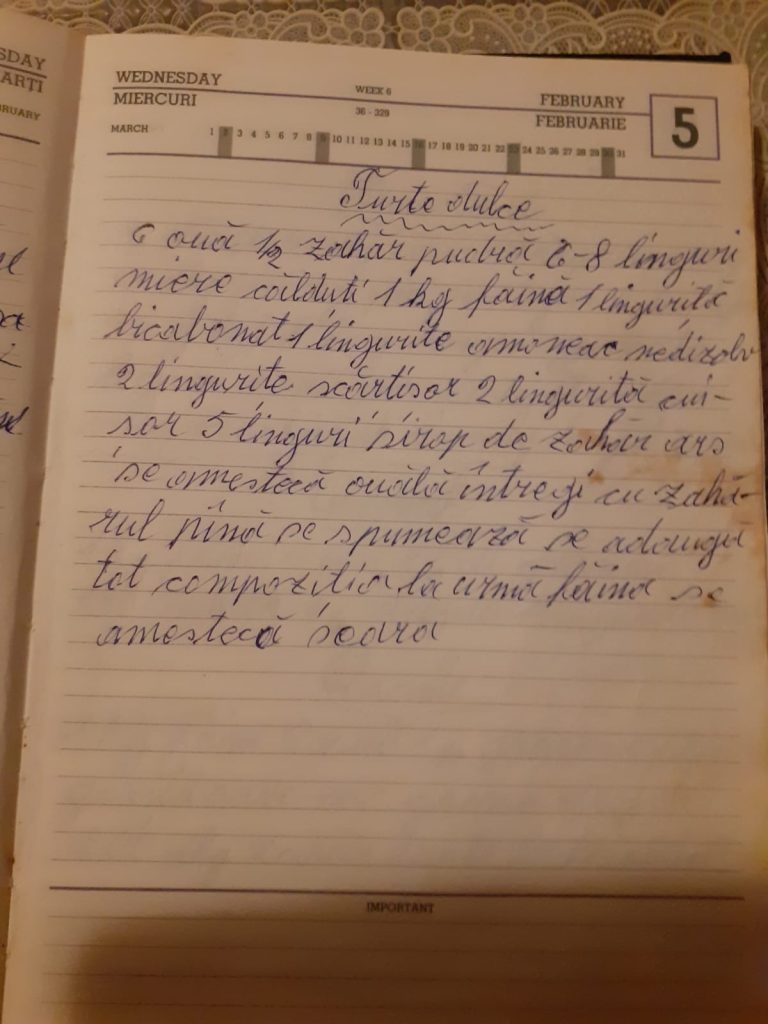 SDAY
ARȚI
RUARY
WEDNESDAY
MIERCURI
WEEK 6
36 - 329
FEBRUARY
FEBRUARIE
5
MARCH 1 2 3 4 5 6 7 8 9 10 11 12 13 14 15 16 17 18 19 20 21 22 23 24 25 26 27 28 29 30 31
Turte dulce
6 ouă 1/2 zahăr pudră 6-8 linguri
miere călduți 1 kg făină 1 linguriță
bicabonat 1 lingurite amoneac nedizolv
2 lingurițe scărtisor 2 linguriță cui-
sor 5 linguri sirop de zahăr ars
se amestecă ouălă întregi cu zahă-
rul pînă se spumează se adaugu
tot compoziția la urmă făina se
amestecă seara
IMPORTANT